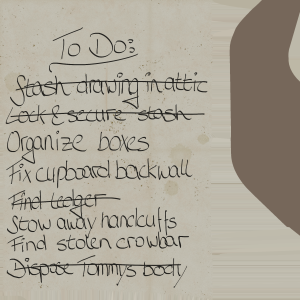 To Do:
Stash drawing in attic
Lock & secure stash
Organize boxes
Fix cupboard backwall
Find Ledger
Stow away handcuffs
Find stolen crowbar
Dispose Tommys body